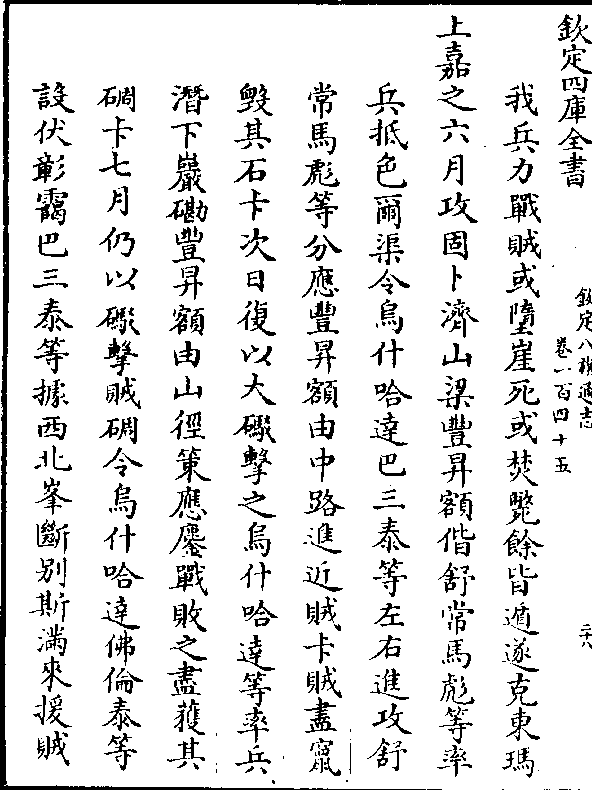 欽定四庫全書
欽定八旗通志
卷一百四十五
二十八
我兵力戰賊或墮崖死或焚斃餘皆遁遂克東瑪
上嘉之六月攻固卜濟山梁豐昇額偕舒常馬彪等率
兵抵色爾渠令烏什哈達巴三泰等左右進攻舒
常馬彪等分應豐昇額由中路進近賊卡賊盡竄
毁其石卡次日復以大礮擊之烏什哈達等率兵
潛下巖磡豐昇額由山徑策應鏖戰敗之盡獲其
碉卡七月仍以礮擊賊碉令烏什哈達佛倫泰等
設伏彰靄巴三泰等據西北峯斷别斯滿來援賊